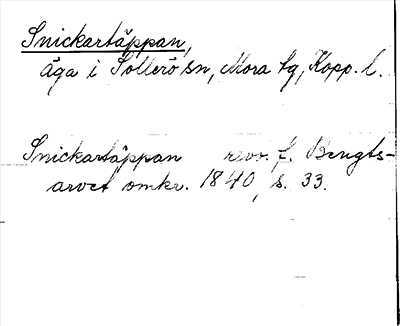 Snickartäppan,
äga i Sollerö sn, Mora tg, Kopp. l.
Snickartäppan revr. f. Bengts-
arvet omkr. 1840, s. 33.